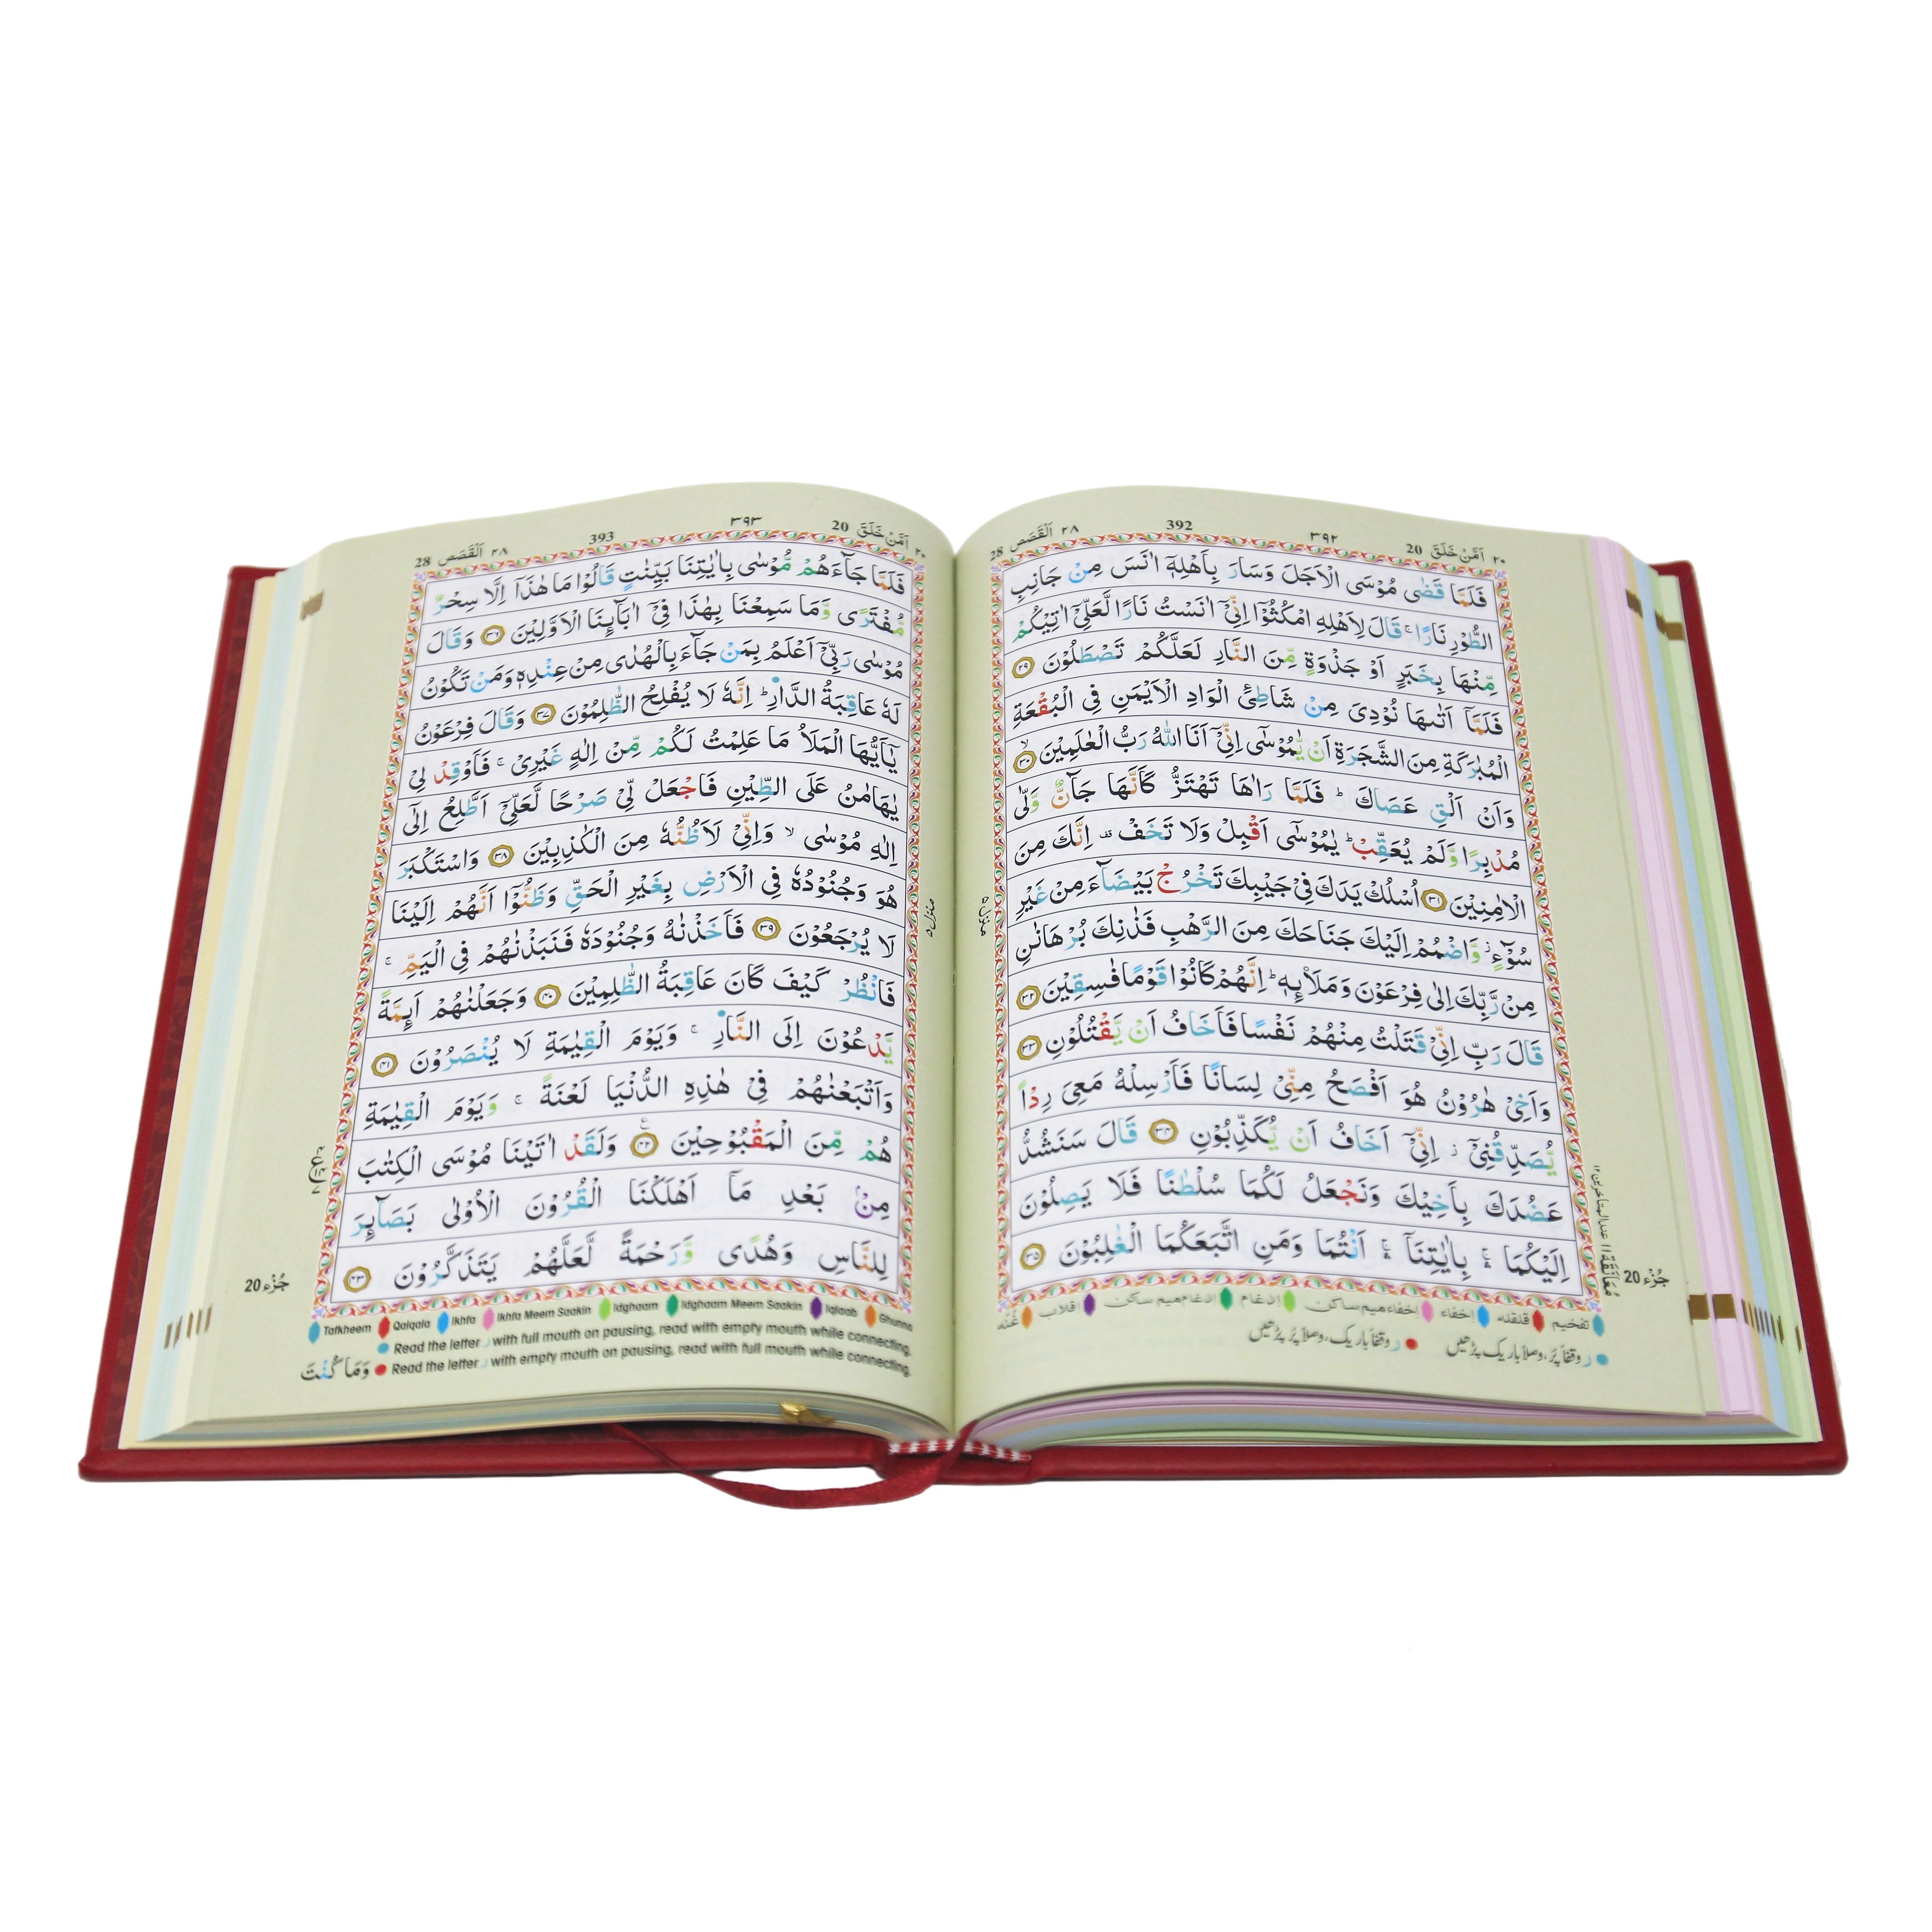 ٢٠ اَمَّنْ خَلَقَ 20 ٣٩٢ 392 ٢٨ اَلْقَصَص 28
فَلَمَّا قَضٰى مُوْسَى الْاَجَلَ وَسَارَ بِاَهْلِهٖٓ اٰنَسَ مِنْ جَانِبِ
الطُّوْرِ نَارًا ۚ قَالَ لِاَهْلِهِ امْكُثُوْٓا اِنِّيْٓ اٰنَسْتُ نَارًا لَّعَلِّيْٓ اٰتِيْكُمْ
مِّنْهَا بِخَبَرٍ اَوْ جَذْوَةٍ مِّنَ النَّارِ لَعَلَّكُمْ تَصْطَلُوْنَ ٢٩
فَلَمَّآ اَتٰىهَا نُوْدِيَ مِنْ شَاطِئِ الْوَادِ الْاَيْمَنِ فِي الْبُقْعَةِ
الْمُبٰرَكَةِ مِنَ الشَّجَرَةِ اَنْ يّٰمُوْسٰٓى اِنِّيْٓ اَنَا اللّٰهُ رَبُّ الْعٰلَمِيْنَ ۙ ٣٠
وَاَنْ اَلْقِ عَصَاكَ ؕ فَلَمَّا رَاٰهَا تَهْتَزُّ كَاَنَّهَا جَآنٌّ وَّلّٰى
مُدْبِرًا وَّلَمْ يُعَقِّبْ ؕ يٰمُوْسٰٓى اَقْبِلْ وَلَا تَخَفْ ۣ اِنَّكَ مِنَ
الْاٰمِنِيْنَ ٣١ اُسْلُكْ يَدَكَ فِيْ جَيْبِكَ تَخْرُجْ بَيْضَآءَ مِنْ غَيْرِ
سُوْٓءٍ ۫ وَّاضْمُمْ اِلَيْكَ جَنَاحَكَ مِنَ الرَّهْبِ فَذٰنِكَ بُرْهَانٰنِ
مِنْ رَّبِّكَ اِلٰى فِرْعَوْنَ وَمَلَا۟ئِهٖ ؕ اِنَّهُمْ كَانُوْا قَوْمًا فٰسِقِيْنَ ٣٢
قَالَ رَبِّ اِنِّيْ قَتَلْتُ مِنْهُمْ نَفْسًا فَاَخَافُ اَنْ يَّقْتُلُوْنِ ٣٣
وَاَخِيْ هٰرُوْنُ هُوَ اَفْصَحُ مِنِّيْ لِسَانًا فَاَرْسِلْهُ مَعِيَ رِدْاً
يُّصَدِّقُنِيْٓ ۫ اِنِّيْٓ اَخَافُ اَنْ يُّكَذِّبُوْنِ ٣٤ قَالَ سَنَشُدُّ
عَضُدَكَ بِاَخِيْكَ وَنَجْعَلُ لَكُمَا سُلْطٰنًا فَلَا يَصِلُوْنَ
اِلَيْكُمَا ۛۚ بِاٰيٰتِنَآ ۛۚ اَنْتُمَا وَمَنِ اتَّبَعَكُمَا الْغٰلِبُوْنَ ٣٥
منزل ٥
جُزْء 20
تفخيم قلقله إخفاء إخفاء ميم ساكن إدغام ادغام ميم ساكن اقلاب غُنّه
ر وقفاً پُر، وصلاً باریک پڑھیں ر وقفاً باریک، وصلاً پُر پڑھیں
٢٠ اَمَّنْ خَلَقَ 20 ٣٩٣ 393 ٢٨ اَلْقَصَص 28
فَلَمَّا جَآءَهُمْ مُّوْسٰى بِاٰيٰتِنَا بَيِّنٰتٍ قَالُوْا مَا هٰذَآ اِلَّا سِحْرٌ
مُّفْتَرًى وَّمَا سَمِعْنَا بِهٰذَا فِيْٓ اٰبَآئِنَا الْاَوَّلِيْنَ ٣٦ وَقَالَ
مُوْسٰى رَبِّيْٓ اَعْلَمُ بِمَنْ جَآءَ بِالْهُدٰى مِنْ عِنْدِهٖ وَمَنْ تَكُوْنُ
لَهٗ عَاقِبَةُ الدَّارِ ؕ اِنَّهٗ لَا يُفْلِحُ الظّٰلِمُوْنَ ٣٧ وَقَالَ فِرْعَوْنُ
يٰٓاَيُّهَا الْمَلَاُ مَا عَلِمْتُ لَكُمْ مِّنْ اِلٰهٍ غَيْرِيْ ۚ فَاَوْقِدْ لِيْ
يٰهَامٰنُ عَلَى الطِّيْنِ فَاجْعَلْ لِّيْ صَرْحًا لَّعَلِّيْٓ اَطَّلِعُ اِلٰٓى
اِلٰهِ مُوْسٰى ۙ وَاِنِّيْ لَاَظُنُّهٗ مِنَ الْكٰذِبِيْنَ ٣٨ وَاسْتَكْبَرَ
هُوَ وَجُنُوْدُهٗ فِي الْاَرْضِ بِغَيْرِ الْحَقِّ وَظَنُّوْٓا اَنَّهُمْ اِلَيْنَا
لَا يُرْجَعُوْنَ ٣٩ فَاَخَذْنٰهُ وَجُنُوْدَهٗ فَنَبَذْنٰهُمْ فِي الْيَمِّ ۚ
فَانْظُرْ كَيْفَ كَانَ عَاقِبَةُ الظّٰلِمِيْنَ ٤٠ وَجَعَلْنٰهُمْ اَئِمَّةً
يَّدْعُوْنَ اِلَى النَّارِ ۚ وَيَوْمَ الْقِيٰمَةِ لَا يُنْصَرُوْنَ ٤١
وَاَتْبَعْنٰهُمْ فِيْ هٰذِهِ الدُّنْيَا لَعْنَةً ۚ وَيَوْمَ الْقِيٰمَةِ
هُمْ مِّنَ الْمَقْبُوْحِيْنَ ٤٢ وَلَقَدْ اٰتَيْنَا مُوْسَى الْكِتٰبَ
مِنْۢ بَعْدِ مَآ اَهْلَكْنَا الْقُرُوْنَ الْاُوْلٰى بَصَآئِرَ
لِلنَّاسِ وَهُدًى وَّرَحْمَةً لَّعَلَّهُمْ يَتَذَكَّرُوْنَ ٤٣
منزل ٥
جُزْء 20
Tafkheem Qalqala Ikhfa Ikhfa Meem Saakin Idghaam Idghaam Meem Saakin Iqlaab Ghunna
Read the letter ر with full mouth on pausing, read with empty mouth while connecting.
Read the letter ر with empty mouth on pausing, read with full mouth while connecting.
وَمَا كُنْتَ